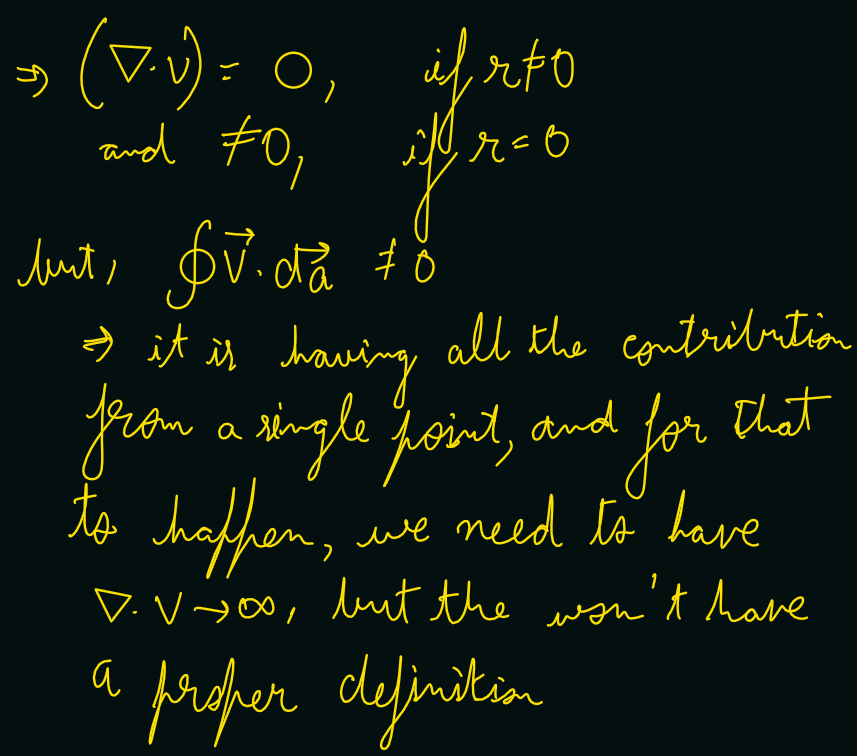 ⇒ (∇·V) = 0, if r≠0
and ≠0, if r=0
but, ∮V⃗·da⃗ ≠ 0
⇒ it is having all the contribution
from a single point, and for that
to happen, we need to have
∇·V→∞, but the won't have
a proper definition